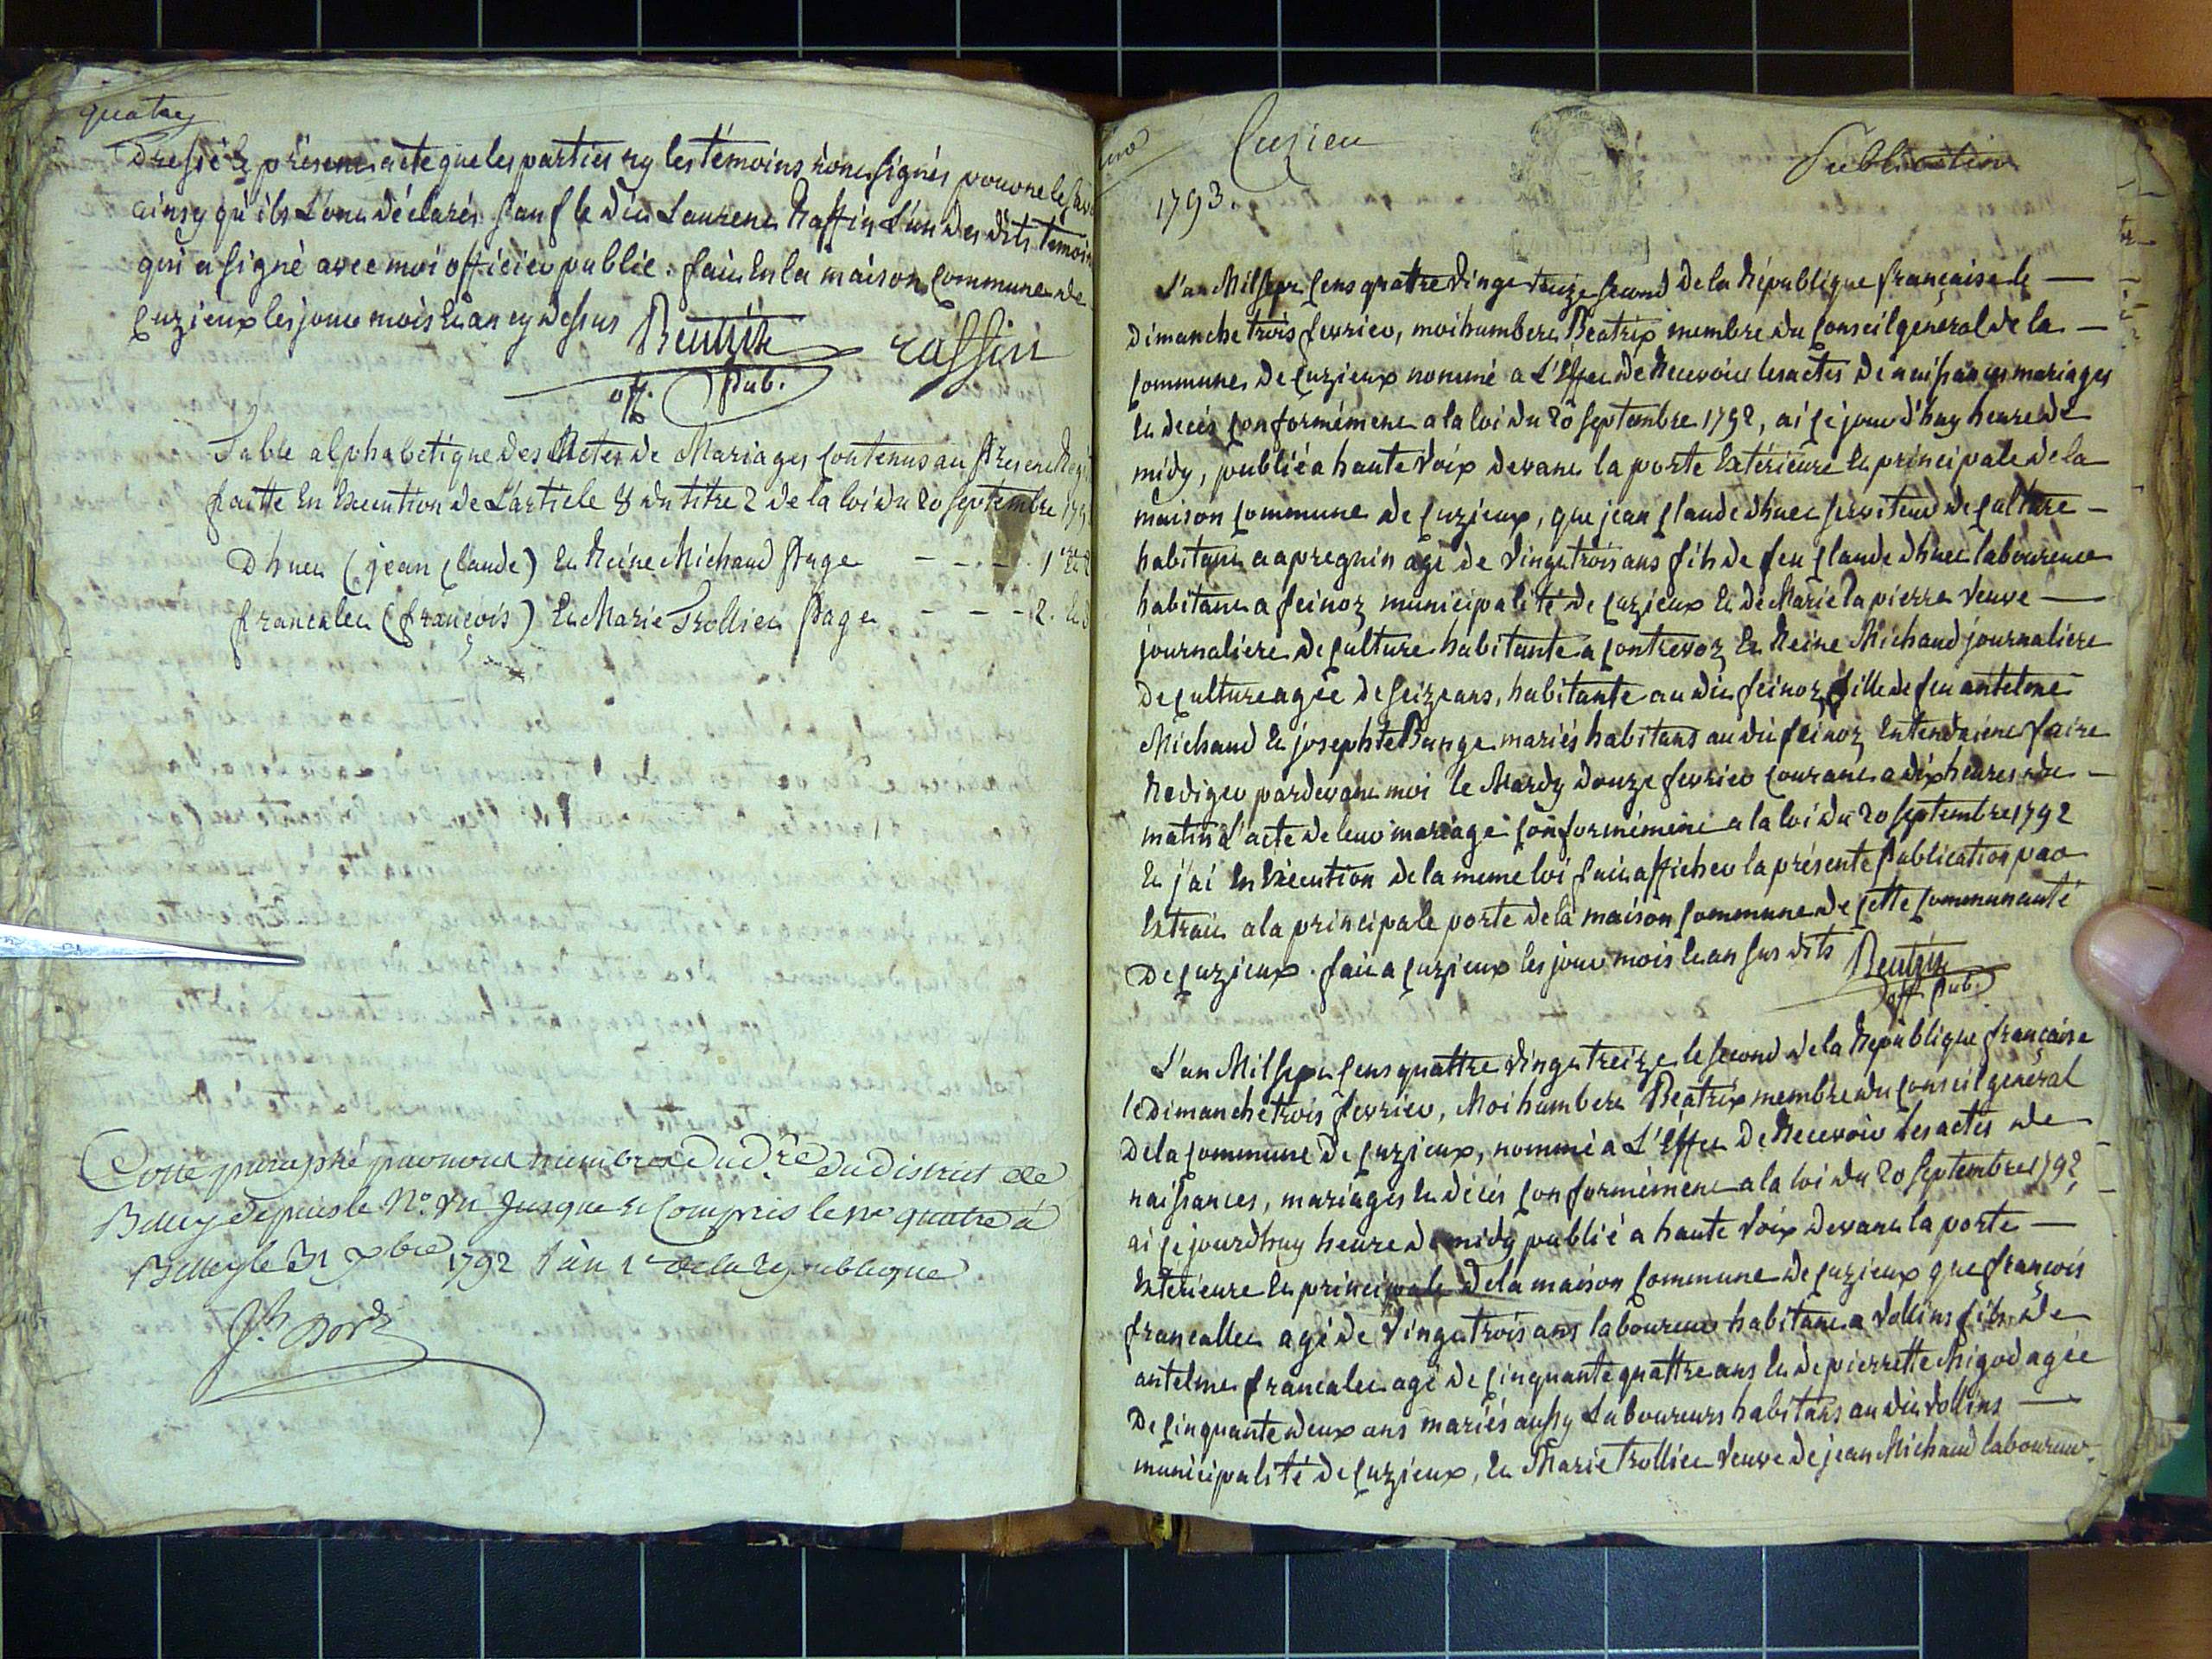 quatre
dressé le présent acte que les parties ny les témoins n'ont signés pour ne le sav
ainsy qu'ils L'ont déclarés sauf le dit Laurent Raffin L'un des dits temoin
qui a signé avec moi officier public : fait En la maison Commune de
Cuzieux les jour mois Et an cy dessus Beatrix raffin
off. Pub.
Table alphabetique des Actes de Mariages Contenus au Present Reg
faitte En Execution de L'article 8 du titre 2 de la loi du 20 septembre 179
Dhuet (jean Claude) Et Reine Michaud Page - - - 1re Et
francalet (francois) Et Marie Trolliet Page - - - 2. Et
Cotté paraphé par nous membre du d.re du district de
Belley depuis le N.o un Jusque et Compris le n.o quatre à
Belley le 31 xbre 1792 l'an 1er de la republique
uno Cuzieu Publication
1793.
L'an Mil sept Cens quattre Vingt treize second de la République française le —
dimanche trois fevrier, moi humbert Beatrix membre du Conseil general de la —
Commune de Cuzieux nommé a L'Effet de Recevoir les actes de naissances mariages
Et decés Conformément a la loi du 20 septembre 1792, ai Ce jour d'huy heure de
midy, publié a haute Voix devant la porte Extérieure Et principale de la
maison Commune de Cuzieux, que jean Claude dhuet serviteur de Culture —
habitant a apregnin agé de Vingt trois ans fils de feu Claude dhuet laboureur
habitant a feinoz municipalité de Cuzieux Et de Marie la pierre Veuve —
journaliere de Culture habitante a Contrevoz Et Reine Michaud journaliere
de Culture agée de seize ans, habitante au dit feinoz fille de feu antelme
Michaud Et josephte Bange mariés habitans au dit feinoz Entendaient faire
Rediger pardevant moi le Mardy douze fevrier Courant a dix heures du —
matin L'acte de leur mariage Conformément a la loi du 20 septembre 1792
Et j'ai En Execution de la meme loi fait afficher la présente Publication par
Extrait a la principale porte de la maison Commune de Cette Communauté
de Cuzieux. fait a Cuzieux les jour mois Et an sus dits Beatrix
off Pub.
L'an Mil sept Cens quattre Vingt treize le second de la République française
le dimanche trois fevrier, Moi humbert Beatrix membre du Conseil general
de la Commune de Cuzieux, nommé a L'Effet de Recevoir les actes de
naissances, mariages Et décés Conformément a la loi du 20 septembre 1792,
ai Ce jourdhuy heure de midy publié a haute Voix devant la porte —
Exterieure Et principale de la maison Commune de Cuzieux que françois
francallet agé de Vingt trois ans laboureur habitant a Vollins fils de
antelme francalet agé de Cinquante quattre ans Et de pierrette Migod agée
de Cinquante deux ans mariés aussy Laboureurs habitans au dit Vollins —
municipalité de Cuzieux, Et Marie trolliet Veuve de jean Michaud laboureur